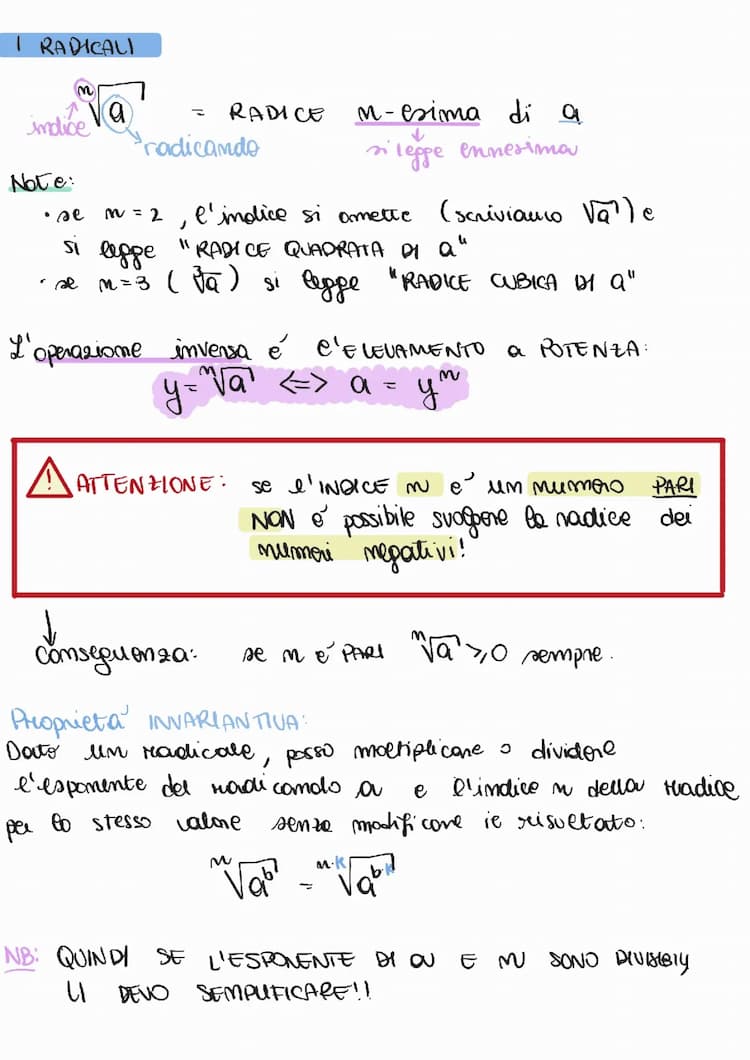 I RADICALI
ⁿ√a = RADICE n-esima di a
indice radicando si legge ennesima
Note:
• se n = 2, l'indice si omette (scriviamo √a) e
si legge "RADICE QUADRATA DI a"
• se n=3 (∛a) si legge "RADICE CUBICA DI a"
L'operazione inversa é l'ELEVAMENTO a POTENZA:
y = ⁿ√a <=> a = yⁿ
! ATTENZIONE: se l'INDICE n é un numero PARI
NON é possibile svolgere la radice dei
numeri negativi!
↓
Conseguenza: se n é PARI ⁿ√a ⩾ 0 sempre.
Proprietá INVARIANTIVA:
Dato un radicale, posso moltiplicare o dividere
l'esponente del radicando a e l'indice n della radice
per lo stesso valore senza modificare il risultato:
ⁿ√aᵇ = ⁿ·ᵏ√aᵇ·ᵏ
NB: QUINDI SE L'ESPONENTE DI a E n SONO DIVISIBILI
LI DEVO SEMPLIFICARE!!